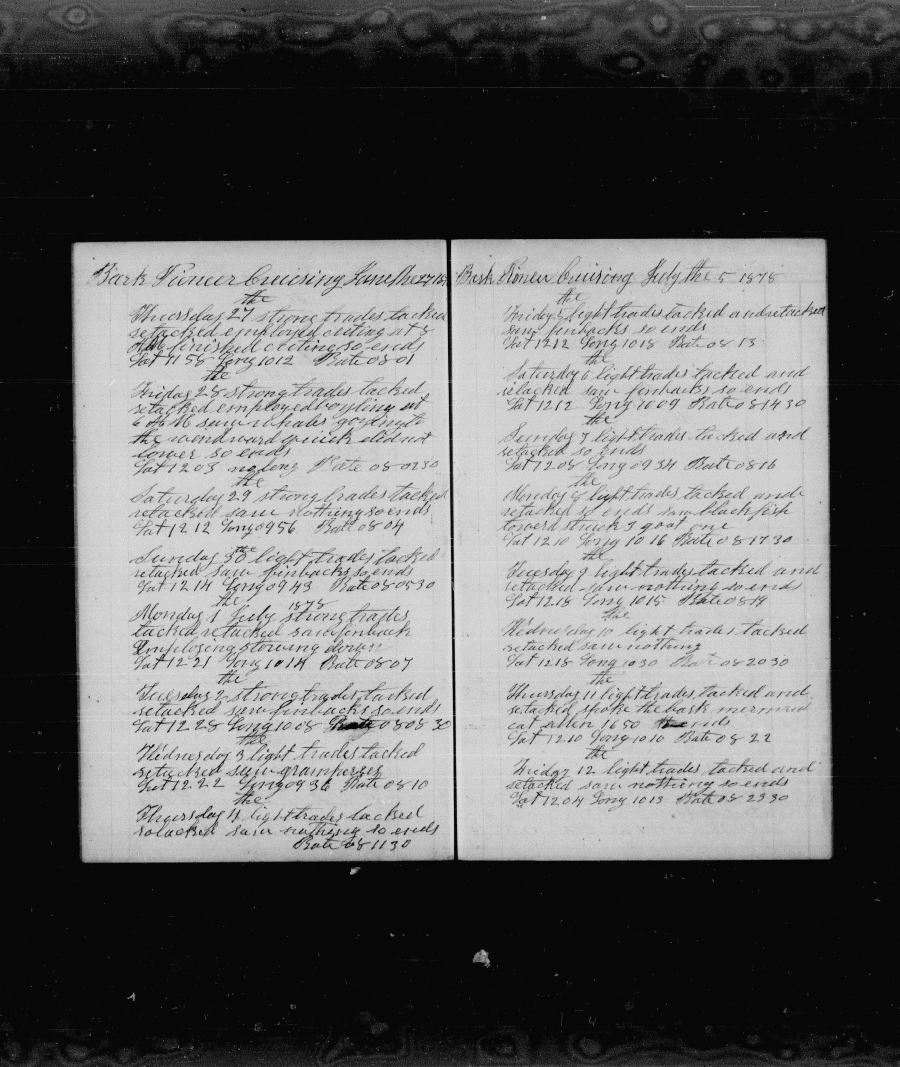 Bark Pioneer Cruising June the 27 18
the
Thursday 27 strong trades tacked
retacked employed cuting at 8
finished cutting so ends
Lat 11 58 Long 10 12 Rate 08 01
the
Friday 28 strong trades tacked
retacked employed boyling at
6 saw whales going to
the wendward quick did not
lower so ends
Lat 12 03 no long Rate 08 02 30
the
Saturday 29 strong trades tacked
retacked saw nothing so ends
Lat 12 12 Long 09 56 Rate 08 04
the
Sunday 30 light trades tacked
retacked saw finbacks so ends
Lat 12 14 Long 09 43 Rate 08 05 30
the 1878
Monday 1 July strong trades
tacked retacked saw finback
Employing stowing down
Lat 12 21 Long 10 14 Rate 08 07
the
Tuesday 2 strong trades tacked
retacked saw finbacks so ends
Lat 12 28 Long 10 08 Rate 08 08 30
the
Wednesday 3 light trades tacked
retacked saw grampuses
Lat 12 22 Long 09 36 Rate 08 10
the
Thursday 4 light trades tacked
retacked saw nothing so ends
Rate 08 11 30
Bark Pioneer Cruising July the 5 1878
the
Friday 5 light trades tacked and retacked
saw finbacks so ends
Lat 12 12 Long 10 18 Rate 08 13
the
Saturday 6 light trades tacked and
retacked saw finbacks so ends
Lat 12 12 Long 10 09 Rate 08 14 30
the
Sunday 7 light trades tacked and
retacked so ends
Lat 12 08 Long 09 34 Rate 08 16
the
Monday 8 light trades tacked and
retacked so ends saw blackfish
lowerd struck 3 goat one
Lat 12 10 Long 10 16 Rate 08 17 30
the
Tuesday 9 light trades tacked and
retacked saw nothing so ends
Lat 12 18 Long 10 15 Rate 08 19
the
Wednesday 10 light trades tacked
retacked saw nothing
Lat 12 18 Long 10 30 Rat 08 20 30
the
Thursday 11 light trades tacked and
retacked spoke the bark mermaid
cat allen 16 50 ends
Lat 12 10 Long 10 10 Rate 08 22
the
Friday 12 light trades tacked and
retacked saw nothing so ends
Lat 12 04 Long 10 13 Rate 08 23 30